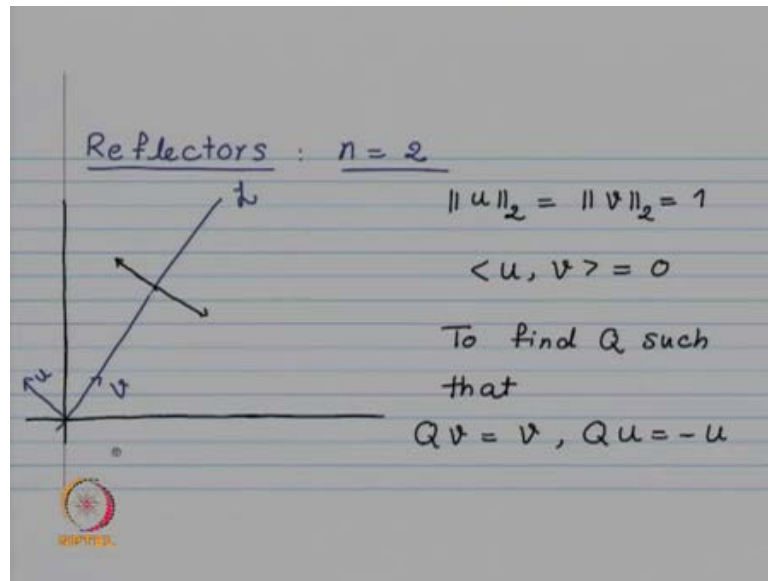 Reflectors : n = 2
L
‖u‖₂ = ‖v‖₂ = 1
<u, v> = 0
To find Q such
that
Qv = v, Qu = -u
u
v
NPTEL